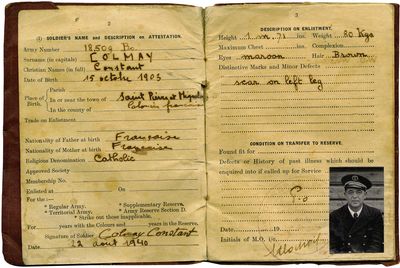 2
(I) SOLDIER'S NAME and DESCRIPTION on ATTESTATION.
Army Number 18509 Bo
Surname (in capitals) COLMAY
Christian Names (in full) Constant
Date of Birth 15 octobre 1903
Place of Birth
Parish
In or near the town of Saint Pierre et Miquelon
In the county of Colonie française
Trade on Enlistment
Nationality of Father at birth Française
Nationality of Mother at birth Française
Religious Denomination Catholic
Approved Society
Membership No.
Enlisted at On
For the:—
* Regular Army. * Supplementary Reserve.
* Territorial Army. * Army Reserve Section D.
* Strike out those inapplicable.
For years with the Colours and years in the Reserve.
Signature of Soldier Colmay Constant
Date 22 aout 1940
3
DESCRIPTION ON ENLISTMENT.
Height 1 m 71 ins. Weight 80 Kgs
Maximum Chest ins. Complexion
Eyes maroon Hair Brown
Distinctive Marks and Minor Defects
scar on left leg
CONDITION ON TRANSFER TO RESERVE.
Found fit for
Defects or History of past illness which should be
enquired into if called up for Service
Date 19
Initials of M.O. i/c